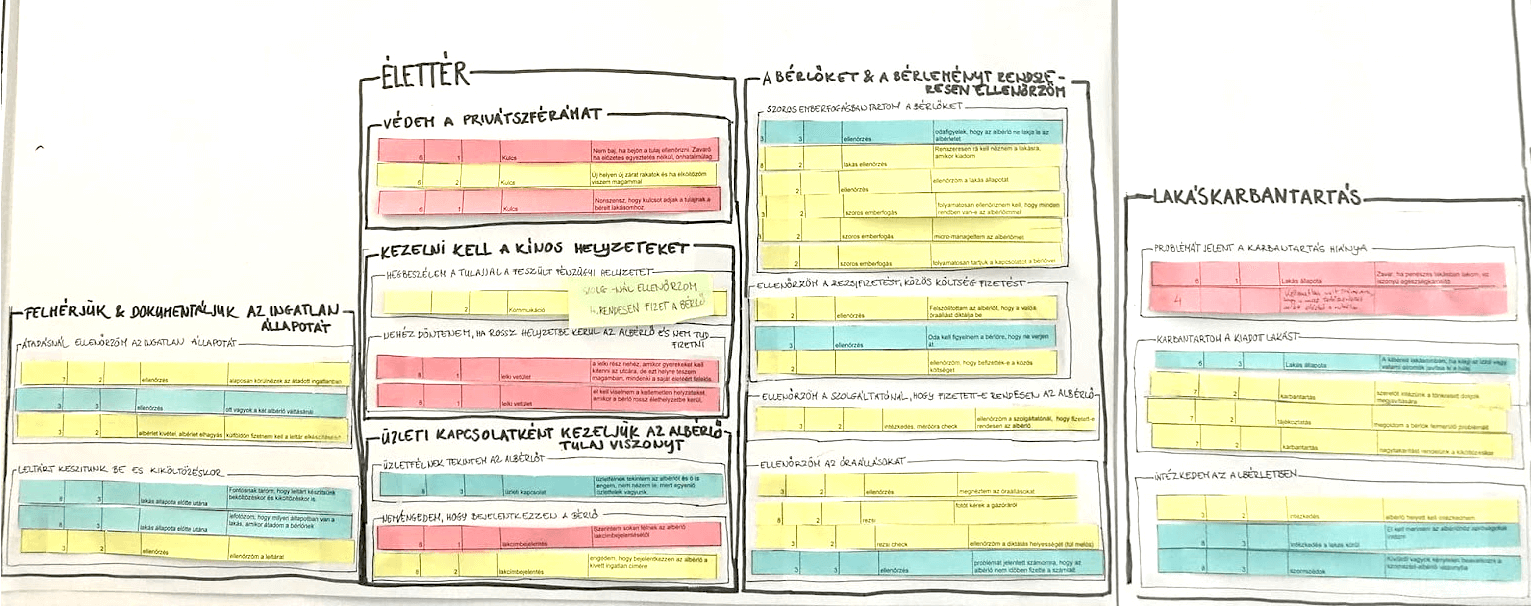 FELMÉRJÜK & DOKUMENTÁLJUK AZ INGATLAN
ÁLLAPOTÁT
ÁTADÁSNÁL ELLENŐRZÖM AZ INGATLAN ÁLLAPOTÁT
7 2 ellenőrzés alaposan körülnézek az átadott ingatlanban
3 3 ellenőrzés ott vagyok a két albérlő váltásánál
3 2 albérlet kivétel, albérlet elhagyás külföldön fizetnem kell a leltár elkészítéséért
LELTÁRT KÉSZÍTÜNK BE ÉS KIKÖLTÖZÉSKOR
8 3 lakás állapota előtte utána
Fontosnak tarom, hogy leltárt készítsünk
beköltözéskor és kiköltözéskor is.
8 3 lakás állapota előtte utána
lefotózom, hogy milyen állapotban van a
lakás, amikor átadom a bérlőnek
3 2 ellenőrzés ellenőrzöm a leltárat
ÉLETTÉR
VÉDEM A PRIVÁTSZFÉRÁMAT
6 1 Kulcs
Nem baj, ha bejön a tulaj ellenőrizni. Zavaró
ha előzetes egyeztetés nélkül, önhatalmúlag
6 2 Kulcs
Új helyen új zárat rakatok és ha elköltözöm
viszem magammal
6 1 Kulcs
Nonszensz, hogy kulcsot adjak a tulajnak a
bérelt lakásomhoz
KEZELNI KELL A KÍNOS HELYZETEKET
MEGBESZÉLEM A TULAJJAL A FESZÜLT PÉNZÜGYI HELYZETET
2 Kommunikáció
SZOLG.-NÁL ELLENŐRZÖM
RENDESEN FIZET A BÉRLŐ
NEHÉZ DÖNTENEM, HA ROSSZ HELYZETBE KERÜL AZ ALBÉRLŐ ÉS NEM TUD
FIZETNI
8 1 lelki vetület
a lelki rész nehéz, amikor gyerekeket kell
kitenni az utcára, de ezt helyre teszem
magamban, mindenki a saját életéért felelős
8 1 lelki vetület
el kell viselnem a kellemetlen helyzeteket,
amikor a bérlő rossz élethelyzetbe kerül.
ÜZLETI KAPCSOLATKÉNT KEZELJÜK AZ ALBÉRLŐ
TULAJ VISZONYT
ÜZLETFÉLNEK TEKINTEM AZ ALBÉRLŐT
8 3 üzleti kapcsolat
üzletfélnek tekintem az albérlőt és ő is
engem, nem nézem le, mert egyenlő
üzletfelek vagyunk.
NEM/ENGEDEM, HOGY BEJELENTKEZZEN A BÉRLŐ
8 1 lakcímbejelentés
Szerintem sokan félnek az albérlő
lakcímbejelentésétől
8 2 lakcímbejelentés
engedem, hogy bejelentkezzen az albérlő a
kivett ingatlan címére
A BÉRLŐKET & A BÉRLEMÉNYT RENDSZE-
RESEN ELLENŐRZÖM
SZOROS EMBERFOGÁSBAN TARTOM A BÉRLŐKET
3 3 ellenőrzés
odafigyelek, hogy az albérlő ne lakja le az
albérletet
8 2 lakás ellenőrzés
Renszeresen rá kell néznem a lakásra,
amikor kiadom
2 ellenőrzés ellenőrzöm a lakás állapotát
3 2 szoros emberfogás
folyamatosan ellenőriznem kell, hogy minden
rendben van-e az albérlőmmel
2 szoros emberfogás micro-managettem az albérlőmet
2 szoros emberfogás folyamatosan tartjuk a kapcsolatot a bérlővel
ELLENŐRZÖM A REZSIFIZETÉST, KÖZÖS KÖLTSÉG FIZETÉST
2 ellenőrzés
Felszólítottam az albérlőt, hogy a valós
óraállást diktálja be
3 3 ellenőrzés
Oda kell figyelnem a bérlőre, hogy ne verjen
át
2 ellenőrzöm, hogy befizették-e a közös
költséget
ELLENŐRZÖM A SZOLGÁLTATÓNÁL, HOGY FIZETETT-E RENDESEN AZ ALBÉRLŐ
3 2 intézkedés, mérőóra check
ellenőrzöm a szolgáltatónál, hogy fizetett-e
rendesen az albérlő
ELLENŐRZÖM AZ ÓRAÁLLÁSOKAT
3 2 ellenőrzés megnéztem az óraállásokat
8 2 rezsi fotót kérek a gázóráról
3 2 rezsi check ellenőrzöm a diktálás helyességét (fül melós)
3 3 ellenőrzés
problémát jelentett számomra, hogy az
albérlő nem időben fizette a számláit
LAKÁSKARBANTARTÁS
PROBLÉMÁT JELENT A KARBANTARTÁS HIÁNYA
6 1 Lakás állapota
Zavar, ha penészes lakásban lakom, ez
4
KARBANTARTOM A KIADOTT LAKÁST
6 3 Lakás állapota
7 2 karbantartás
szerelőt hívunk a tönkrement dolgok
megjavítására
7 2 tájékoztatás megoldom a bérlők felmerülő problémáit
7 2 karbantartás nagytakarítást rendezünk a kiköltözéskor
INTÉZKEDEM AZ ALBÉRLETBEN
3 2 intézkedés albérlő helyett kell intézkednem
8 3 intézkedés a lakás körül
3 3 szomszédok